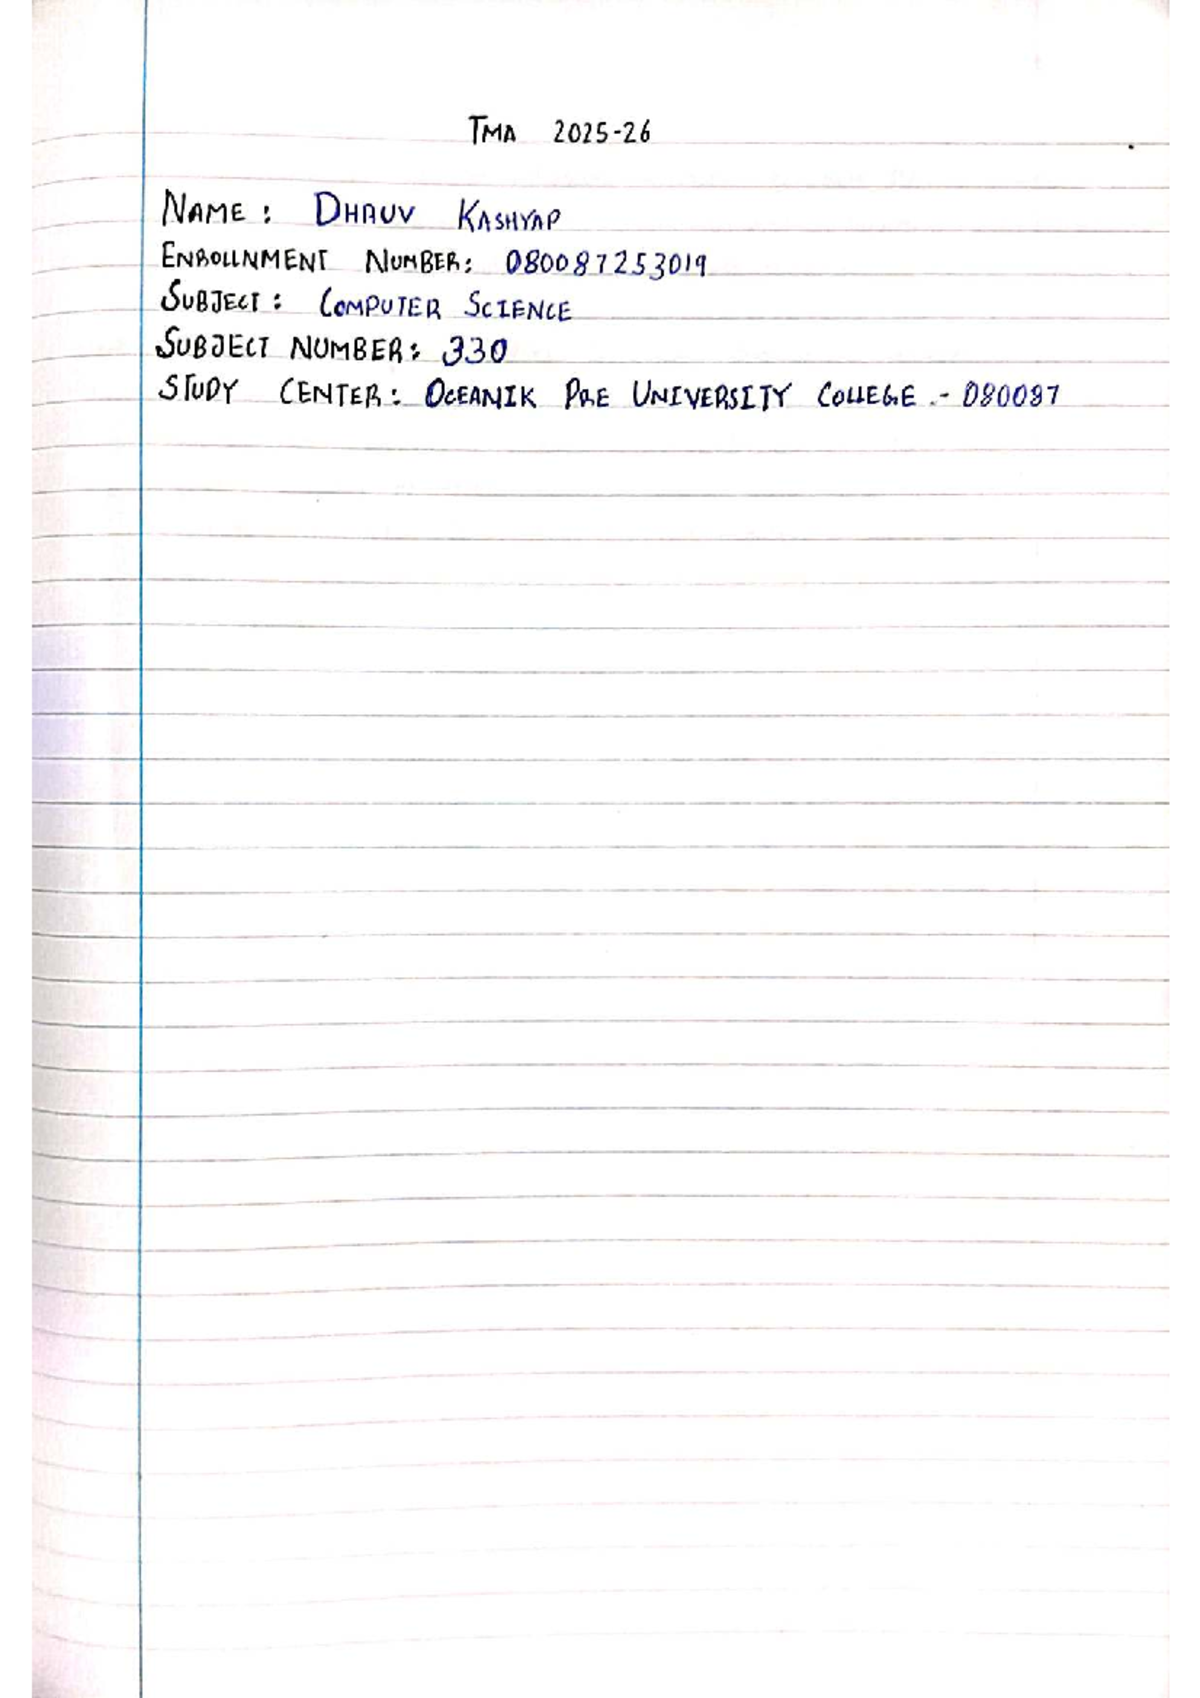 TMA 2025-26
NAME : DHRUV KASHYAP
ENROLLNMENT NUMBER: 080087253019
SUBJECT : COMPUTER SCIENCE
SUBJECT NUMBER: 330
STUDY CENTER: OCEANIK PRE UNIVERSITY COLLEGE - 080087